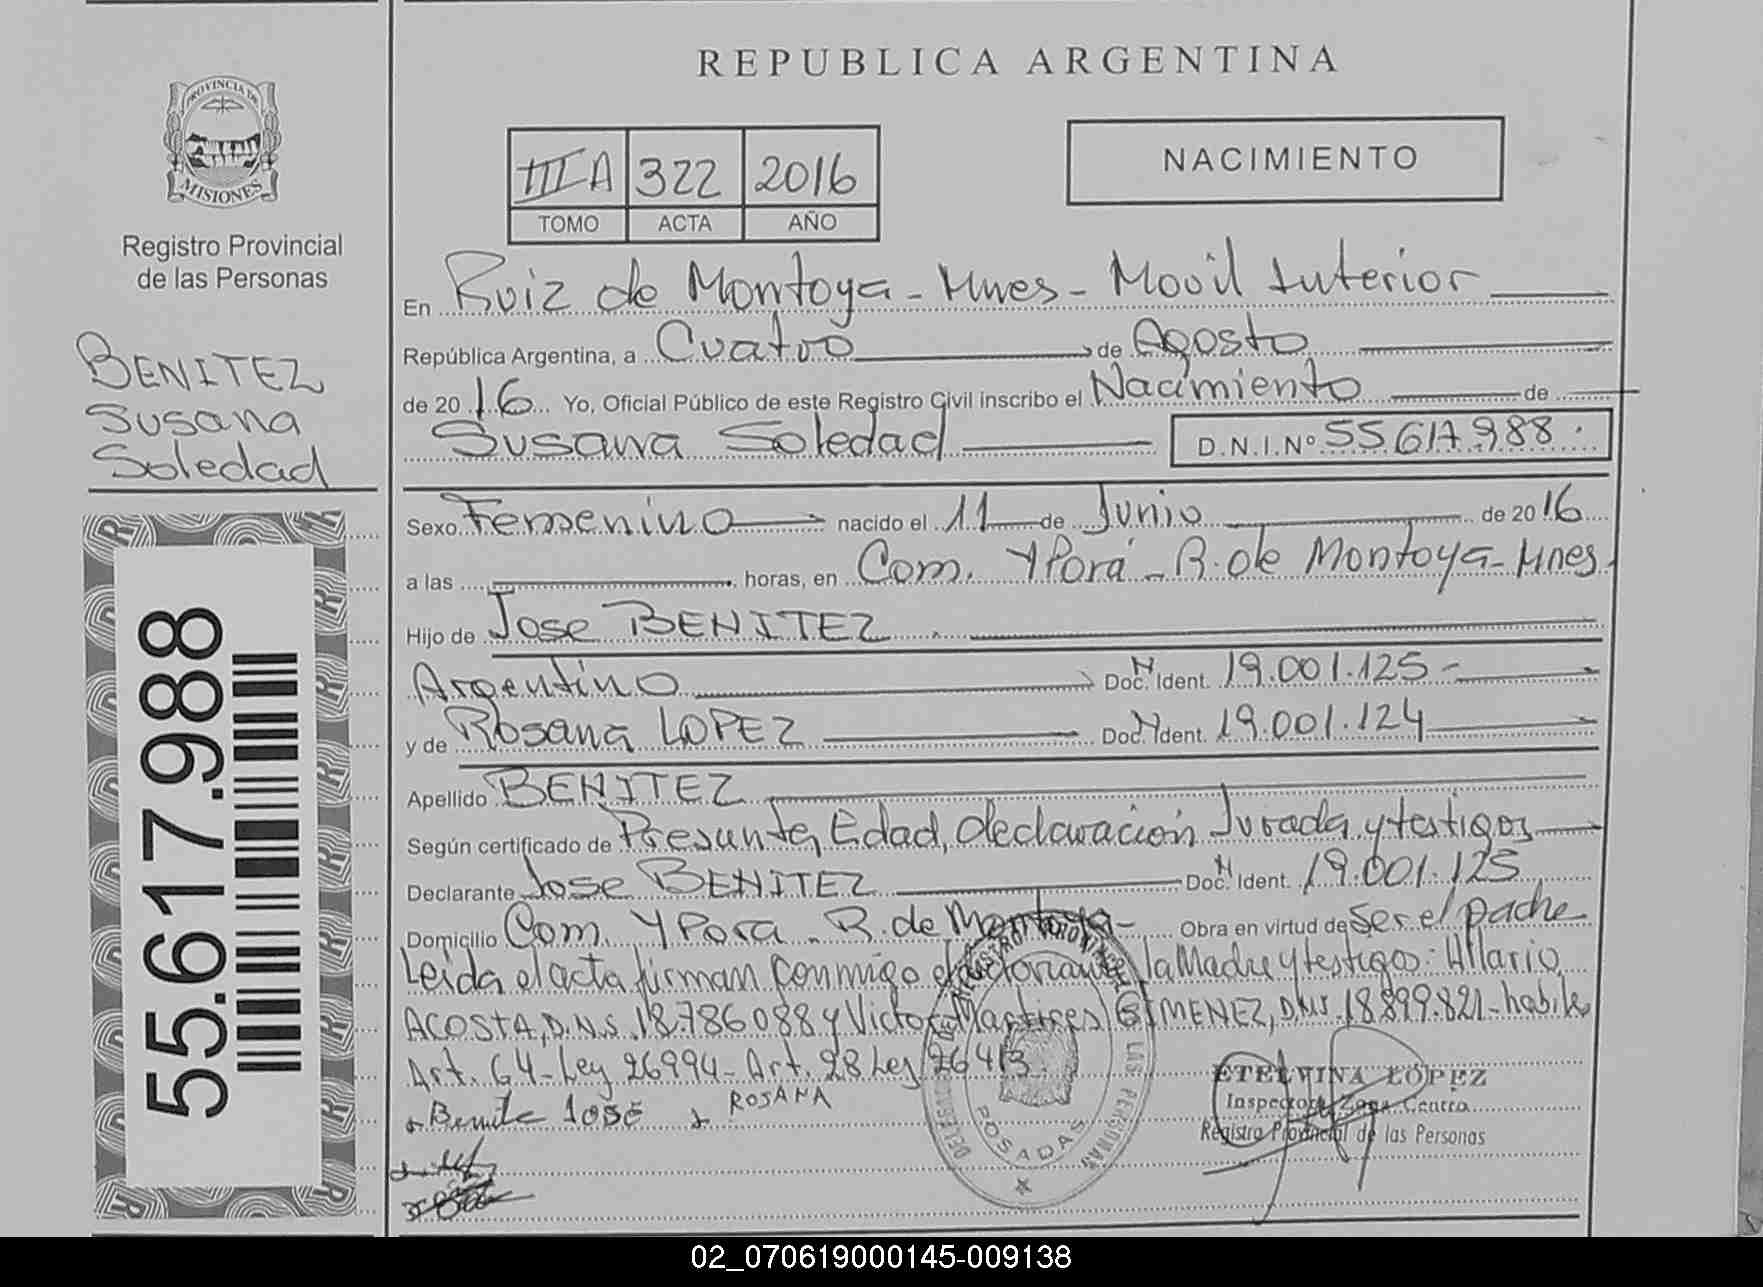 REPUBLICA ARGENTINA
PROVINCIA DE
MISIONES
Registro Provincial
de las Personas
III A 322 2016
TOMO ACTA AÑO
NACIMIENTO
BENITEZ
Susana
Soledad
55.617.988
En Ruiz de Montoya - Mnes - Movil Interior
República Argentina, a Cuatro de Agosto
de 2016 Yo, Oficial Público de este Registro Civil inscribo el Nacimiento de
Susana Soledad D.N.I.Nº 55.617.988
Sexo Femenino nacido el 11 de Junio de 2016
a las horas, en Com. Y Porá - R. de Montoya - Mnes.
Hijo de Jose BENITEZ
Argentino Doc. N Ident. 19.001.125 -
y de Rosana LOPEZ Doc. N Ident. 19.001.124
Apellido BENITEZ
Según certificado de Presunta Edad, declaración Jurada y testigos
Declarante Jose BENITEZ Doc. N Ident. 19.001.125
Domicilio Com. Y Pora - R. de Montoya - Obra en virtud de ser el padre
Leida el acta firman conmigo el la Madre y testigos: Hilario
ACOSTA, D.N.I. 18.786.088 y Victor Martires GIMENEZ, D.N.I. 18.899.821 - habiles
Art. 64 - Ley 26994 - Art. 28 Ley 26413
Benite José ROSANA
REGISTRO PROVINCIAL DE LAS PERSONAS
POSADAS
ETELVINA LOPEZ
Inspectora Zona Centro
Registro Provincial de las Personas
02_070619000145-009138